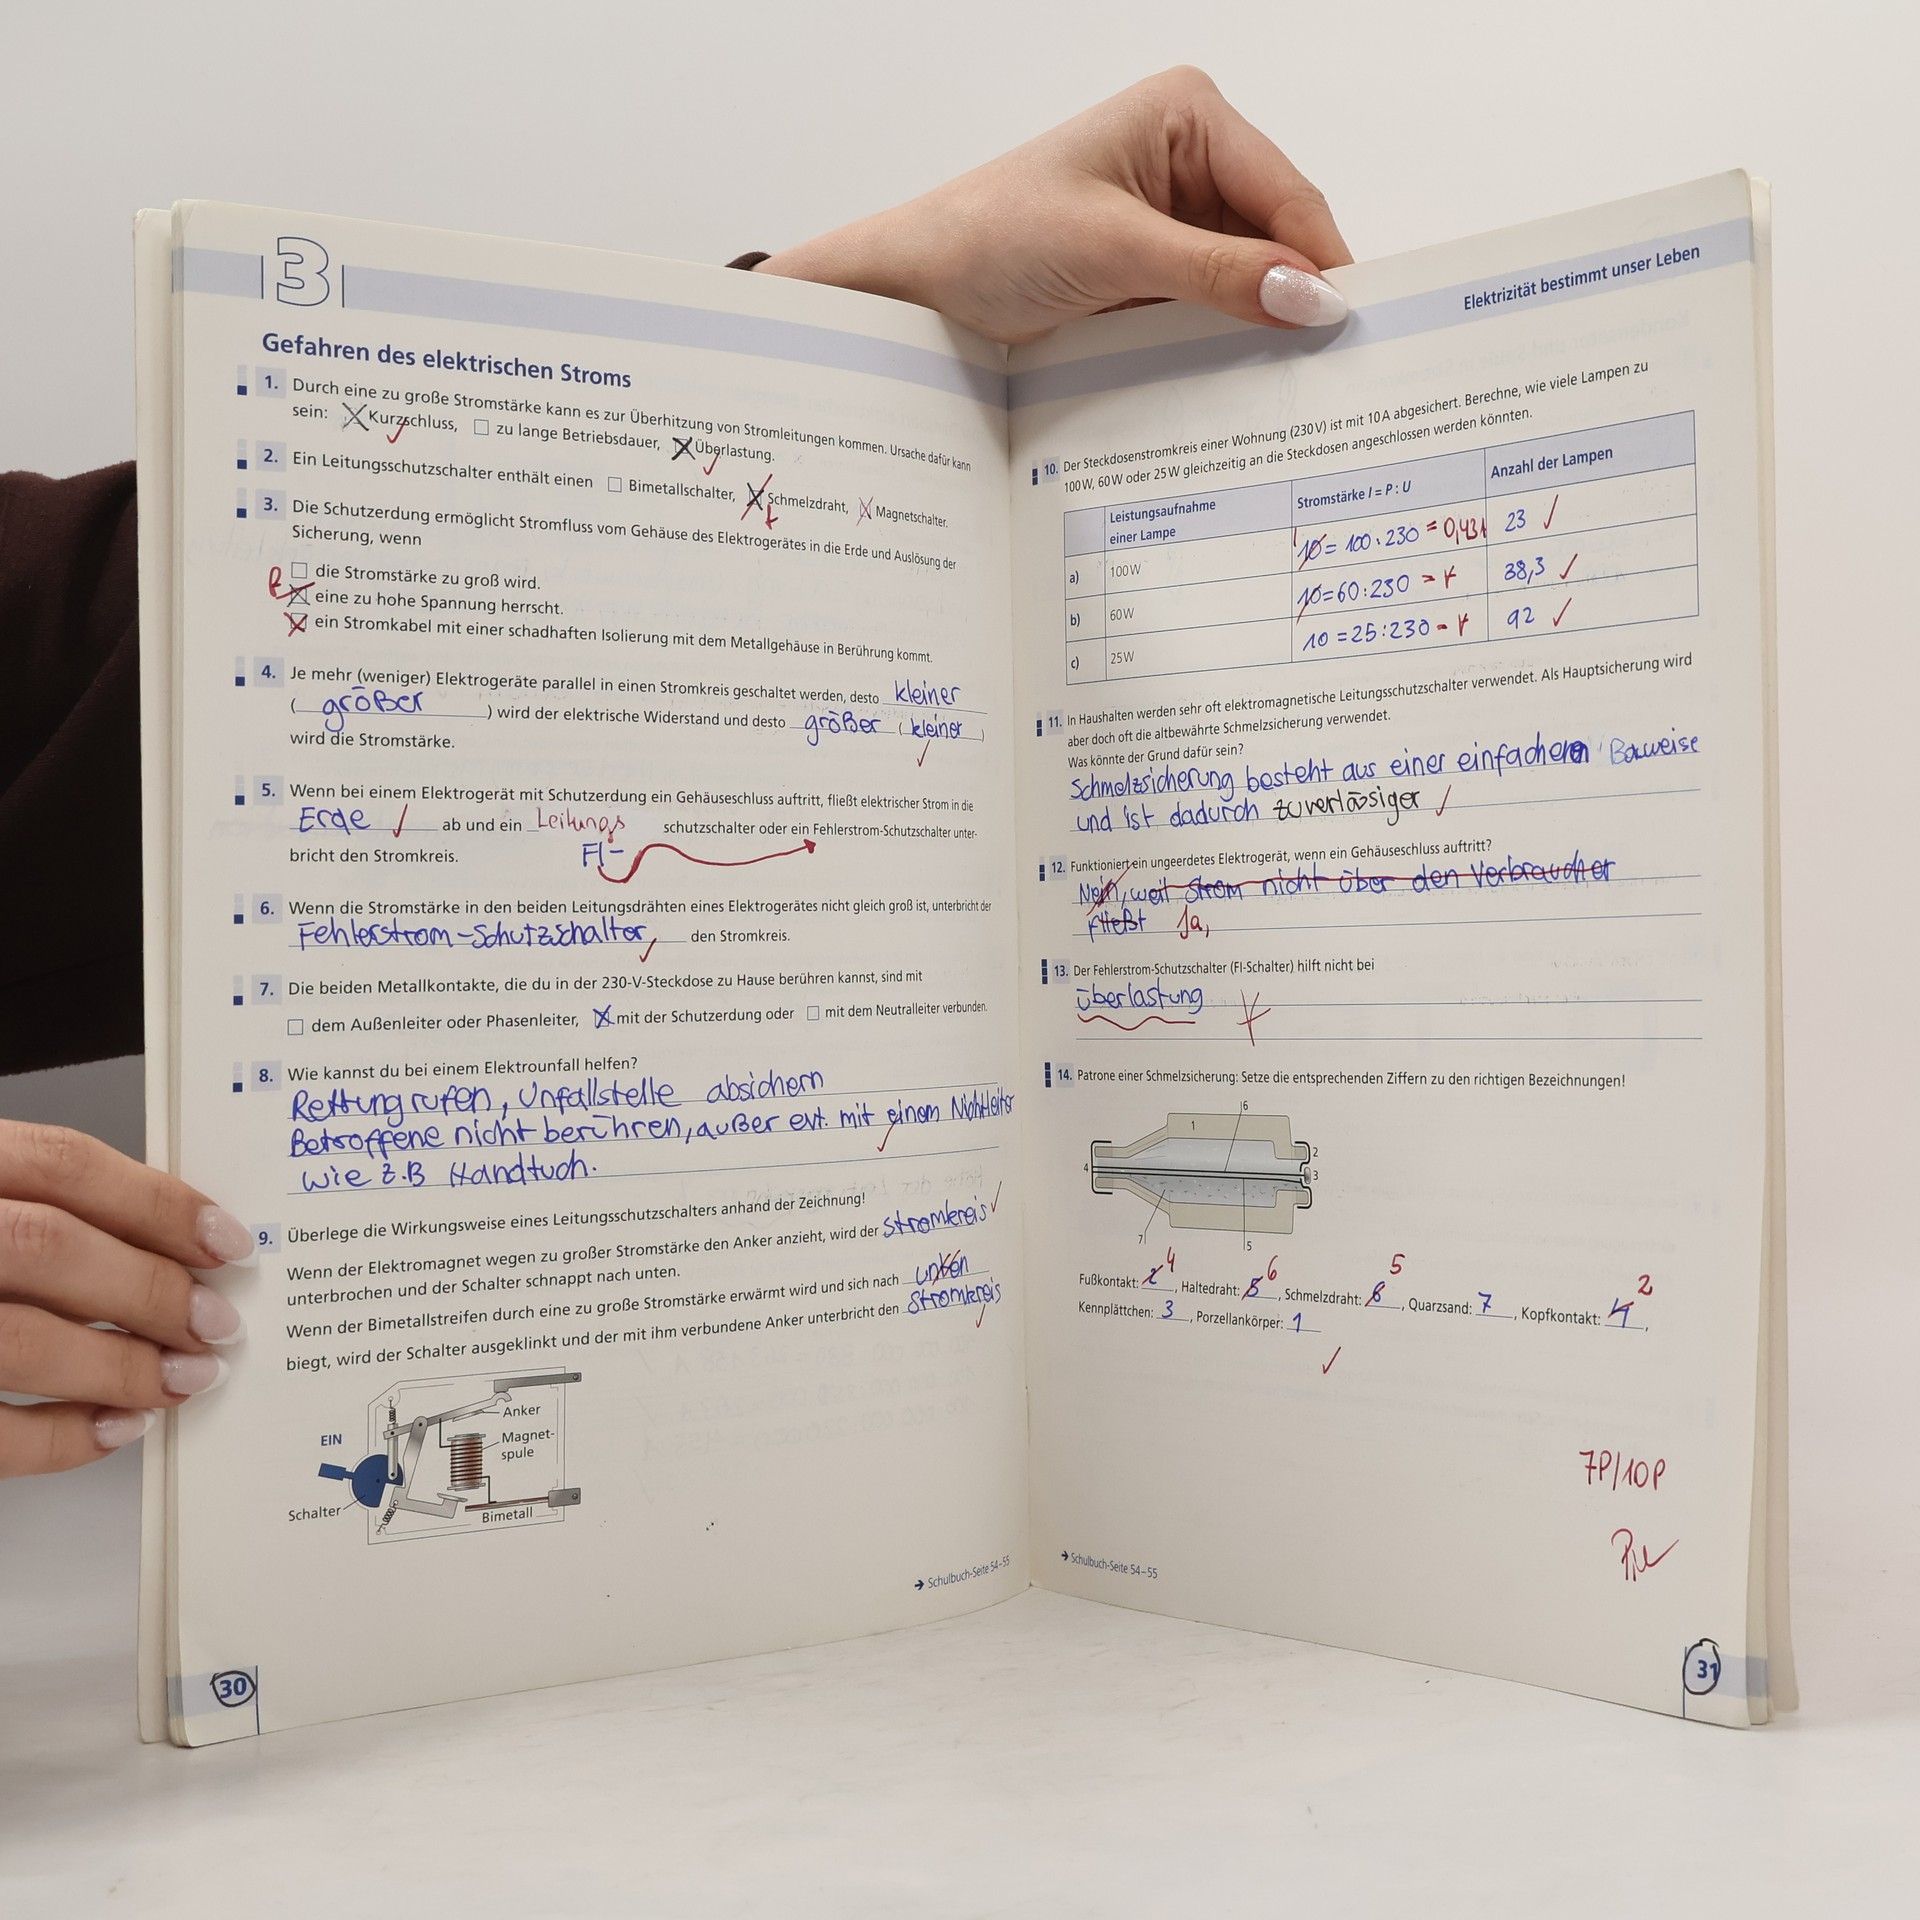 3
Gefahren des elektrischen Stroms
1. Durch eine zu große Stromstärke kann es zur Überhitzung von Stromleitungen kommen. Ursache dafür kann
sein: Kurzschluss, zu lange Betriebsdauer, Überlastung.
2. Ein Leitungsschutzschalter enthält einen Bimetallschalter, Schmelzdraht, Magnetschalter.
3. Die Schutzerdung ermöglicht Stromfluss vom Gehäuse des Elektrogerätes in die Erde und Auslösung der
Sicherung, wenn
die Stromstärke zu groß wird.
eine zu hohe Spannung herrscht.
ein Stromkabel mit einer schadhaften Isolierung mit dem Metallgehäuse in Berührung kommt.
4. Je mehr (weniger) Elektrogeräte parallel in einen Stromkreis geschaltet werden, desto kleiner
( größer ) wird der elektrische Widerstand und desto größer ( kleiner )
wird die Stromstärke.
5. Wenn bei einem Elektrogerät mit Schutzerdung ein Gehäuseschluss auftritt, fließt elektrischer Strom in die
Erde ab und ein Leitungs schutzschalter oder ein Fehlerstrom-Schutzschalter unter-
bricht den Stromkreis. FI-
6. Wenn die Stromstärke in den beiden Leitungsdrähten eines Elektrogerätes nicht gleich groß ist, unterbricht der
Fehlerstrom-Schutzschalter den Stromkreis.
7. Die beiden Metallkontakte, die du in der 230-V-Steckdose zu Hause berühren kannst, sind mit
dem Außenleiter oder Phasenleiter, mit der Schutzerdung oder mit dem Neutralleiter verbunden.
8. Wie kannst du bei einem Elektrounfall helfen?
Rettung rufen, Unfallstelle absichern
Betroffene nicht berühren, außer evt. mit einem Nichtleiter
wie z.B Handtuch.
9. Überlege die Wirkungsweise eines Leitungsschutzschalters anhand der Zeichnung!
Wenn der Elektromagnet wegen zu großer Stromstärke den Anker anzieht, wird der Stromkreis
unterbrochen und der Schalter schnappt nach unten.
Wenn der Bimetallstreifen durch eine zu große Stromstärke erwärmt wird und sich nach unten
biegt, wird der Schalter ausgeklinkt und der mit ihm verbundene Anker unterbricht den Stromkreis
Anker
EIN
Magnet-
spule
Schalter
Bimetall
→ Schulbuch-Seite 54–55
30
Elektrizität bestimmt unser Leben
10. Der Steckdosenstromkreis einer Wohnung (230 V) ist mit 10 A abgesichert. Berechne, wie viele Lampen zu
100 W, 60 W oder 25 W gleichzeitig an die Steckdosen angeschlossen werden könnten.
Leistungsaufnahme
einer Lampe
Stromstärke I = P : U
Anzahl der Lampen
a) 100 W 10 = 100 : 230 = 0,43 23
b) 60 W 10 = 60 : 230 = 38,3
c) 25 W 10 = 25 : 230 = 92
11. In Haushalten werden sehr oft elektromagnetische Leitungsschutzschalter verwendet. Als Hauptsicherung wird
aber doch oft die altbewährte Schmelzsicherung verwendet.
Was könnte der Grund dafür sein?
Schmelzsicherung besteht aus einer einfacheren Bauweise
und ist dadurch zuverlässiger
12. Funktioniert ein ungeerdetes Elektrogerät, wenn ein Gehäuseschluss auftritt?
Nein, weil Strom nicht über den Verbraucher
fließt Ja,
13. Der Fehlerstrom-Schutzschalter (FI-Schalter) hilft nicht bei
Überlastung
14. Patrone einer Schmelzsicherung: Setze die entsprechenden Ziffern zu den richtigen Bezeichnungen!
6
1
2
4
3
7
5
4 6 5 2
Fußkontakt: 2, Haltedraht: 5, Schmelzdraht: 6, Quarzsand: 7, Kopfkontakt: 4,
Kennplättchen: 3, Porzellankörper: 1
7P/10P
→ Schulbuch-Seite 54–55
31